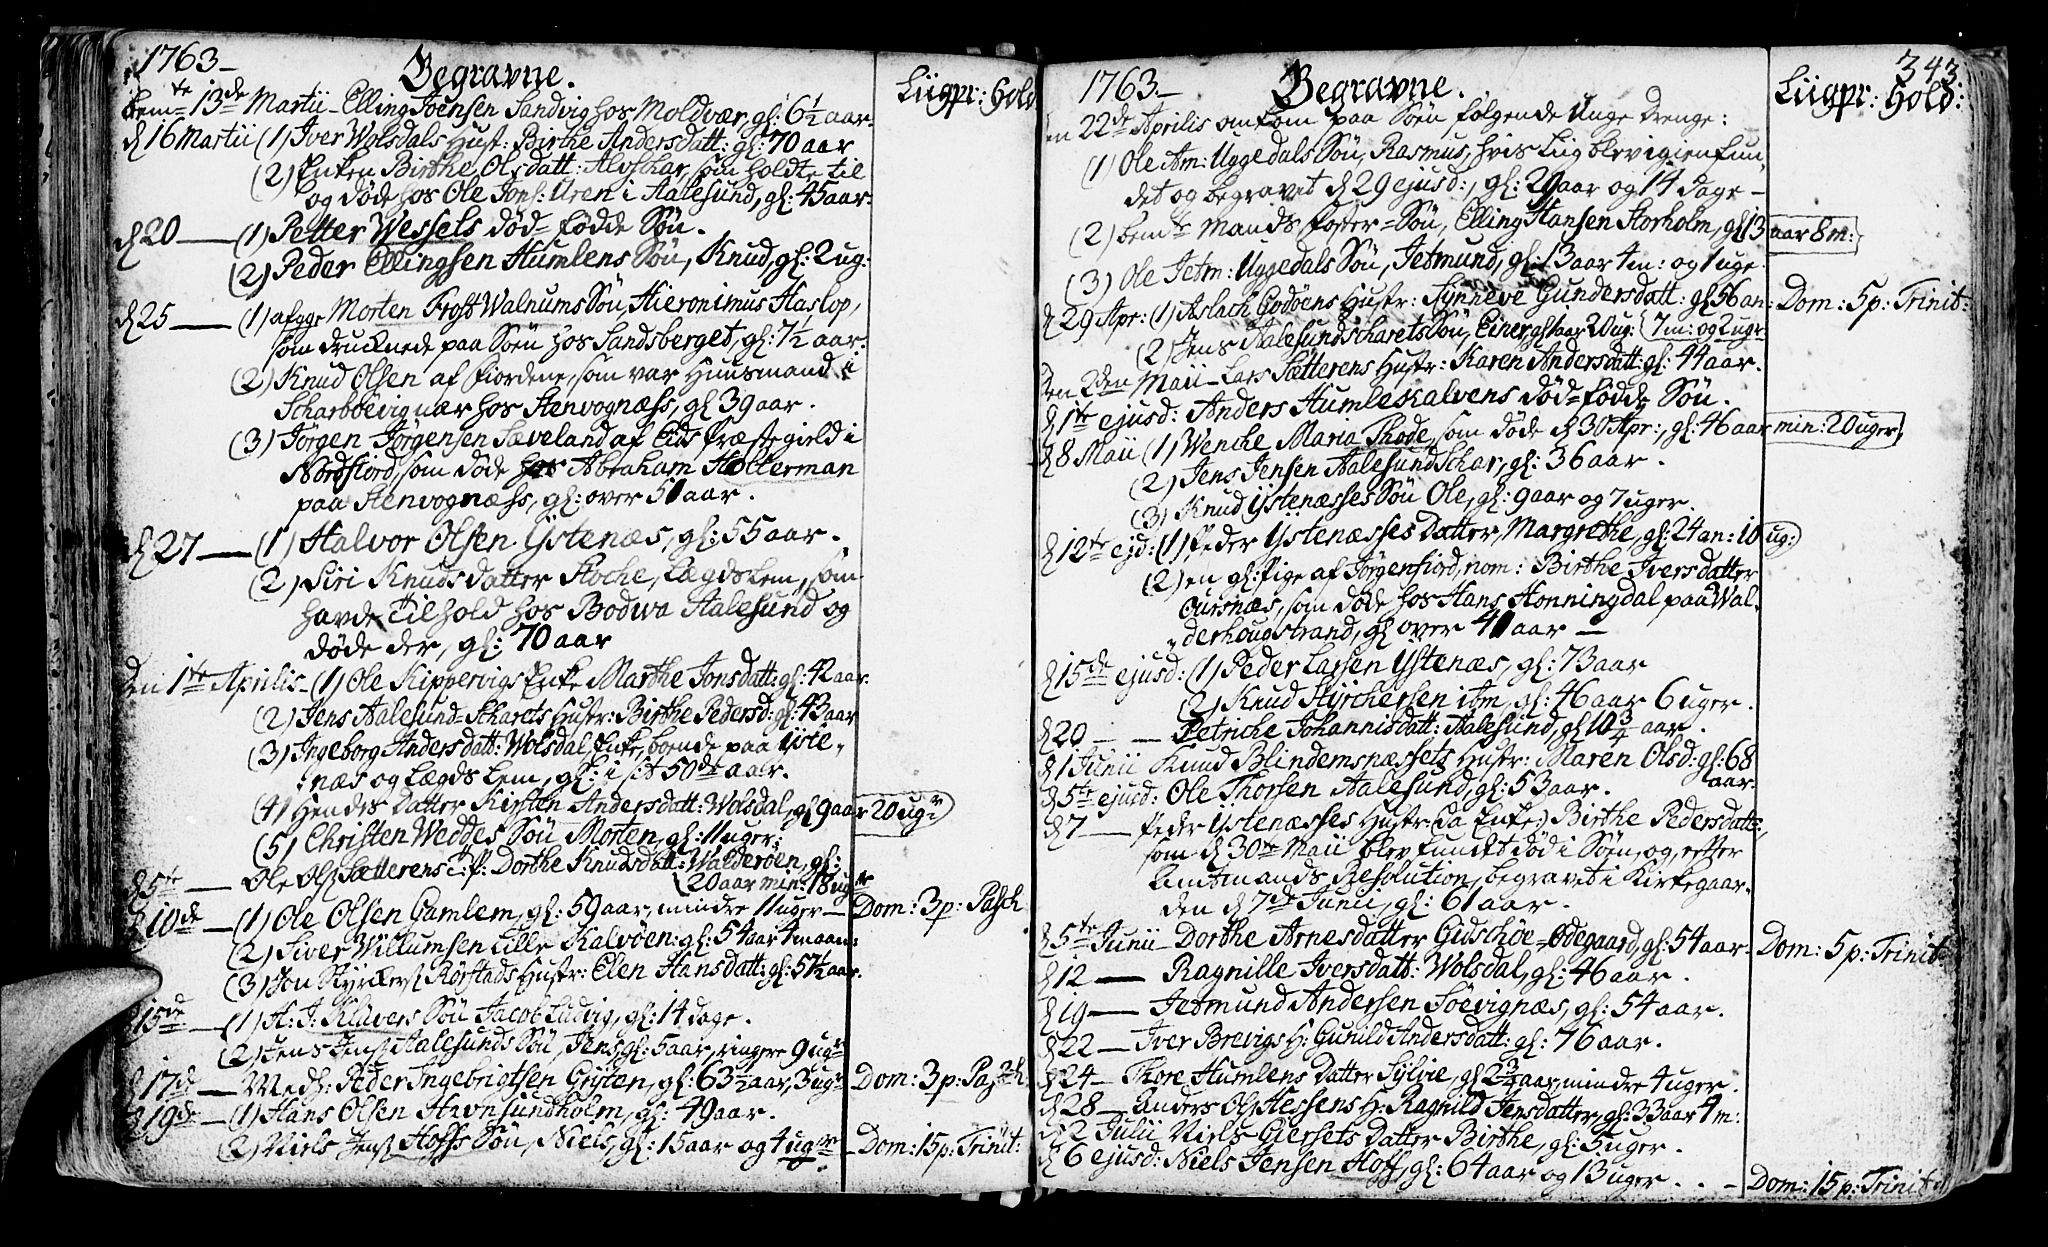 1763 –
Begravne.
Liigpr: Hold:
bem:te 13de Martii – Elling Joensen Sandvig hos Moldvær, gl: 6½ aar.
d 16 Martii (1) Iver Wolsdals Hust: Birthe Andersdatt: gl: 70 aar
(2) Enken Birthe Olsdatt: Alvschar, som holdte til
og døde hos Ole Jons: Uren i Aalesund, gl: 45 aar:
d 20 — (1) Petter Wessels død-fødde Søn.
(2) Peder Ellingsen Humlens Søn, Knud, gl: 2 ug:
d 25 — (1) afgge Morten Frost Walnums Søn, Hieronimus Haslop,
som drucknede paa Søen hos Sandsberget, gl: 7½ aar:
(2) Knud Olsen af Fiordene, som var Huusmand i
Scharbøevig nær hos Stenvognæss, gl 39 aar.
(3) Jørgen Jørgensen Sæveland af Eids Præstegield i
Nordfiord, som døde hos Abraham Holterman
paa Stenvognæss, gl: over 50 aar.
d 27 — (1) Halvor Olsen Ystenæs, gl: 55 aar.
(2) Siri Knudsdatter Stoche, Lægdslem, som
havde Tilhold hos Bodwa Aalesund og
døde der, gl: 70 aar
den 1te Aprilis – (1) Ole Kippervigs Enke Marthe Jonsdatt: gl: 42 aar.
(2) Jens Aalesund-Scharets Hustr: Birthe Pedersd: gl: 43 aar
(3) Ingeborg Andersdatt: Wolsdal, Enke, boende paa Yste-
næs og Lægdslem, gl: i sit 50de aar.
(4) Hendes Datter Kirsten Andersdatt: Wolsdal, gl 9 aar 20 ugr
(5) Christen Weddes Søn Morten, gl: 11 uger:
d 5te — Ole Ols Sætterens P: Dorthe Knudsdatt: Walderøen, gl:
20 aar min: 18 ugr
d 10de — (1) Ole Olsen Gamlem, gl: 59 aar, mindre 11 uger — Dom: 3 p: Pasch
(2) Siver Willumsen Lille Kalvøen: gl: 54 aar 4 maan:
(3) Jon Rørstads Hustr: Elen Hansdatt: gl: 57½ aar.
d 15de — (1) H: J: Klüvers Søn Jacob Ludvig, gl: 14 dage.
(2) Jens Jens Aalesunds Søn, Jens, gl: 5 aar, ringere 9 ugr
d 17de — Medh: Peder Ingebrigtsen Gryten, gl: 63½ aar, 3 ugr Dom: 3 p: Pasch.
d 19de — (1) Hans Olsen Hevnsundholm, gl: 49 aar.
(2) Niels Jens Hoffs Søn, Niels, gl: 15 aar og 4 ugr — Dom: 15 p: Trinit:
1763 –
Begravne.
Liigpr: Hold:
343.
den 22de Aprilis omkom paa Søen følgende Unge Drenge:
(1) Ole Am: Uggedals Søn, Rasmus, hvis Liig blev igienfun-
det og begravet d 29 ejusd:, gl: 20 aar og 14 dage –
(2) bemte Mands foster-Søn, Elling Hansen Storholm, gl 13 aar 8 m:
(3) Ole Jetm: Uggedals Søn, Jetmund, gl: 13 aar 4 m: og 1 uge
d 29 Apr: (1) Aslach Godøens Hustr: Synneve Gundersdatt: gl 56 an: Dom: 5 p: Trinit:
(2) Jens Aalesundscharets Søn, Einer, gl 1 aar 20 ug: 7 m: og 2 ugr
den 2den Maii – Lars Sætterens Hustr: Karen Andersdatt: gl: 44 aar.
d 1te ejusd: Anders Humlekalvens død-fødde Søn.
d 8 Maii (1) Wenche Maria Thode, som døde d 30 Apr:, gl: 46 aar min: 20 uger,
(2) Jens Jensen Aalesundschar, gl: 36 aar.
(3) Knud Ystenæsses Søn Ole, gl: 9 aar og 7 uger.
d 12te ejd: (1) Peder Ystenæsses Datter, Margrethe, gl: 24 an: 10 ug:
(2) en gl: Pige af Jørgenfiord, nom: Birthe Iversdatter
Oursnæs, som døde hos Hans Honningdal paa Wal-
derhougstrand, gl over 40 aar —
d 15de ejusd: (1) Peder Larsen Ystenæs, gl: 73 aar
(2) Knud Styrchersen, gl: 46 aar 6 uger.
d 20 — — Petriche Johannisdatt: Aalesund, gl 10¾ aar.
d 1 Junii Knud Blindemsnæssets Hustr: Maren Olsd: gl: 68
aar.
d 5te ejusd: Ole Thorsen Aalesund, gl: 53 aar.
d 7 — Peder Ystenæsses Hustr: (da Enke) Birthe Pedersdatt:,
som d 30te Maii blev fundet død i Søen, og, efter
Amtmands Resolution, begravet i Kirkegaar-
den d 7de Junii, gl: 61 aar.
d 5te Junii – Dorthe Arnesdatter Gidschøe-Ødegaard, gl: 54 aar – Dom: 5 p: Trinit:
d 12 — Ragnille Iversdatt: Wolsdal, gl: 46 aar.
d 19 — Jetmund Andersen Søevignæs, gl: 54 aar.
d 22 — Iver Brevigs H: Gunild Andersdatt: gl: 76 aar.
d 24 — Thore Humlens Datter Sylvie, gl 2¾ aar, mindre 4 uger.
d 28 — Anders Ols Hessens H: Ragnild Jensdatter, gl: 33 aar 4 m:
d 2 Julii Niels Giersets Datter Birthe, gl: 5 uger.
d 6 ejusd: Niels Jensen Hoff, gl: 64 aar og 13 uger. . – Dom: 15 p: Trinit: